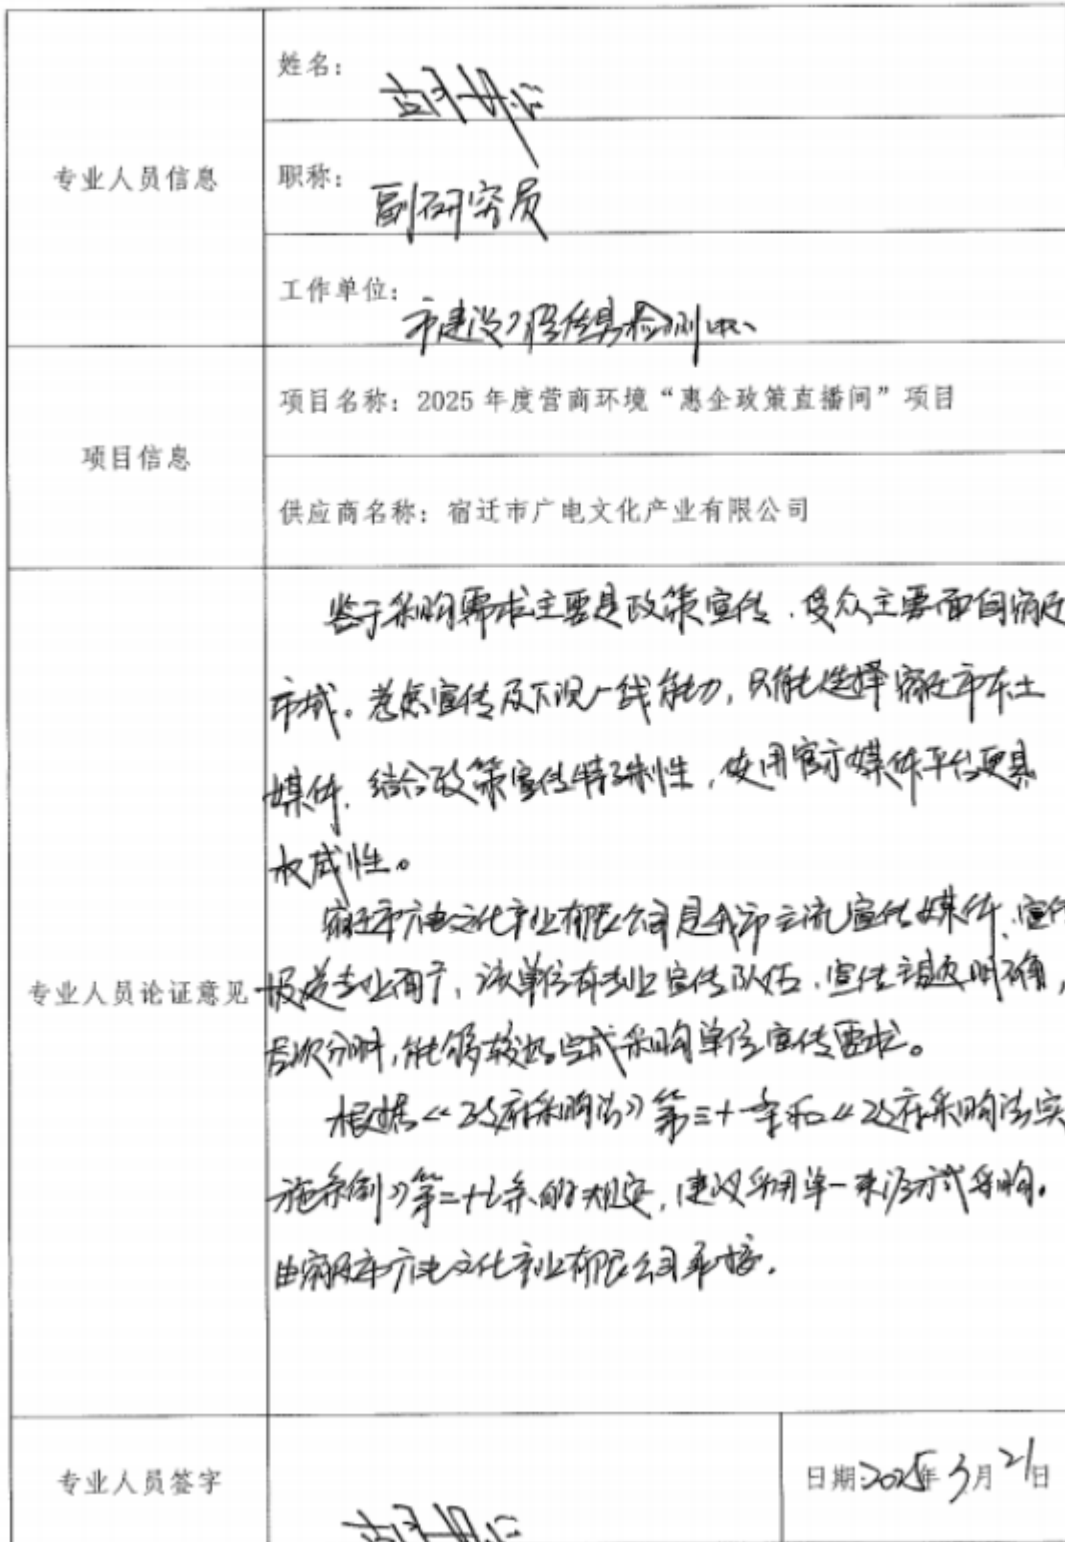 姓名：
专业人员信息
职称：副研究员
工作单位：市建设工程质量检测中心
项目信息
项目名称：2025 年度营商环境“惠企政策直播间”项目
供应商名称：宿迁市广电文化产业有限公司
专业人员论证意见
鉴于采购需求主要是政策宣传，受众主要面向宿迁
市域。考虑宣传及下沉一线能力，只能选择宿迁市本土
媒体，结合政策宣传特殊性，使用官方媒体平台更具
权威性。
宿迁市广电文化产业有限公司是我市主流宣传媒体，宣传
报道专业有序，该单位有专业宣传队伍，宣传主题明确，
层次分明，能够较好完成采购单位宣传要求。
根据《政府采购法》第三十一条和《政府采购法实
施条例》第二十七条的规定，建议采用单一来源方式采购。
由宿迁市广电文化产业有限公司承接。
专业人员签字
日期2025年3月21日